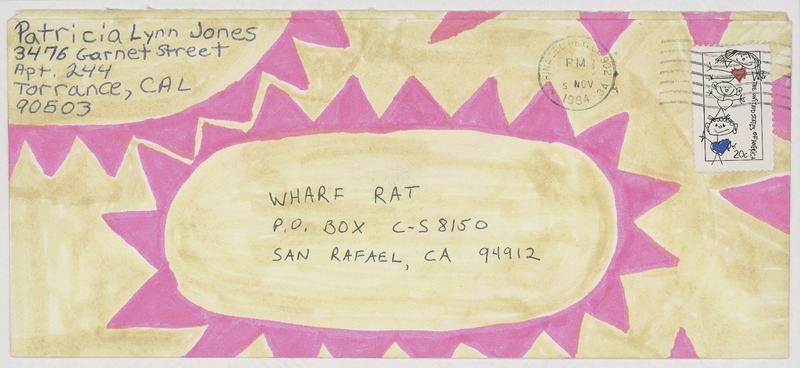 Patricia Lynn Jones
3476 Garnet Street
Apt. 244
Torrance, CAL
90503
PM
5 NOV
1984
20c
WHARF RAT
P.O. BOX C-S8150
SAN RAFAEL, CA 94912